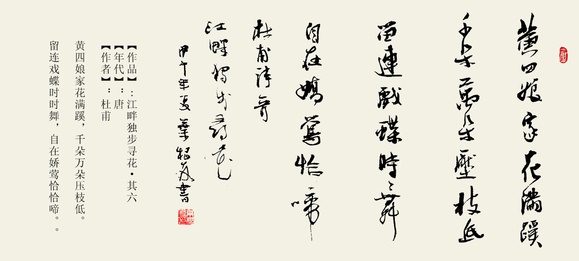 黄四娘家花满蹊
千朵万朵压枝低
留連戲蝶時時舞
自在嬌莺恰恰啼
杜甫诗一首
江畔独步寻花
甲午年夏
書
【作品】：江畔独步寻花·其六
【年代】：唐
【作者】：杜甫
黄四娘家花满蹊，千朵万朵压枝低。
留连戏蝶时时舞，自在娇莺恰恰啼。。